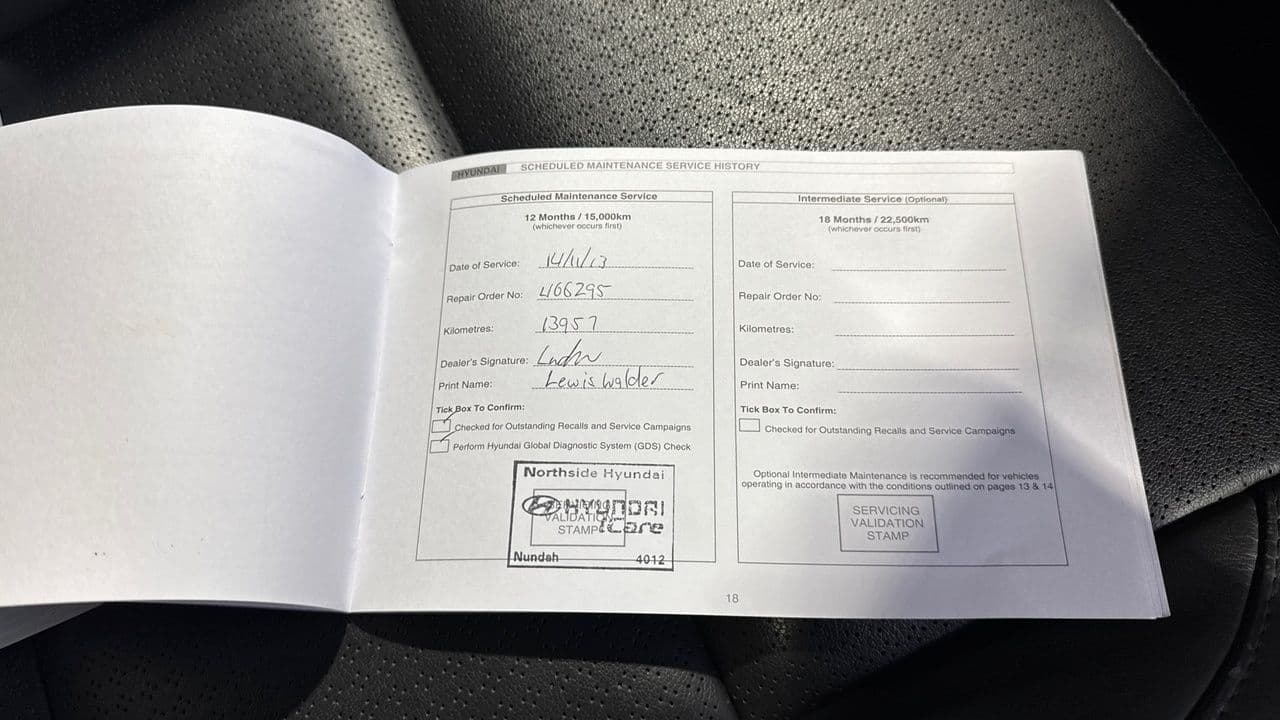 HYUNDAI SCHEDULED MAINTENANCE SERVICE HISTORY
Scheduled Maintenance Service
12 Months / 15,000km
(whichever occurs first)
Date of Service: 14/11/13
Repair Order No: 466295
Kilometres: 13957
Dealer's Signature:
Print Name: Lewis Walder
Tick Box To Confirm:
Checked for Outstanding Recalls and Service Campaigns
Perform Hyundai Global Diagnostic System (GDS) Check
Northside Hyundai
HYUNDAI
iCare
SERVICING
VALIDATION
STAMP
Nundah 4012
Intermediate Service (Optional)
18 Months / 22,500km
(whichever occurs first)
Date of Service:
Repair Order No:
Kilometres:
Dealer's Signature:
Print Name:
Tick Box To Confirm:
Checked for Outstanding Recalls and Service Campaigns
Optional Intermediate Maintenance is recommended for vehicles
operating in accordance with the conditions outlined on pages 13 & 14
SERVICING
VALIDATION
STAMP
18